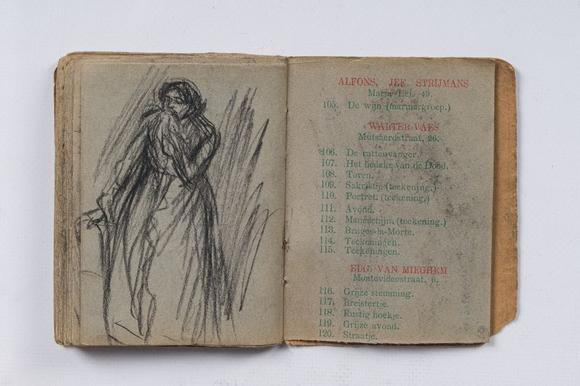 ALFONS, JEF. STRIJMANS
Maria-Lei, 49.
105. De wijn (marmergroep.)
WALTER VAES
Mutsaerdstraat, 26.
106. De rattenvanger.
107. Het liedeke van de Dood.
108. Toren.
109. Sakristij (teekening.)
110. Portret. (teekening.)
111. Avond.
112. Maneschijn. (teekening.)
113. Bruges-la-Morte.
114. Teekeningen.
115. Teekeningen.
EUG. VAN MIEGHEM
Montevideostraat, 6.
116. Grijze stemming.
117. Breistertje.
118. Rustig hoekje.
119. Grijze avond.
120. Straatje.